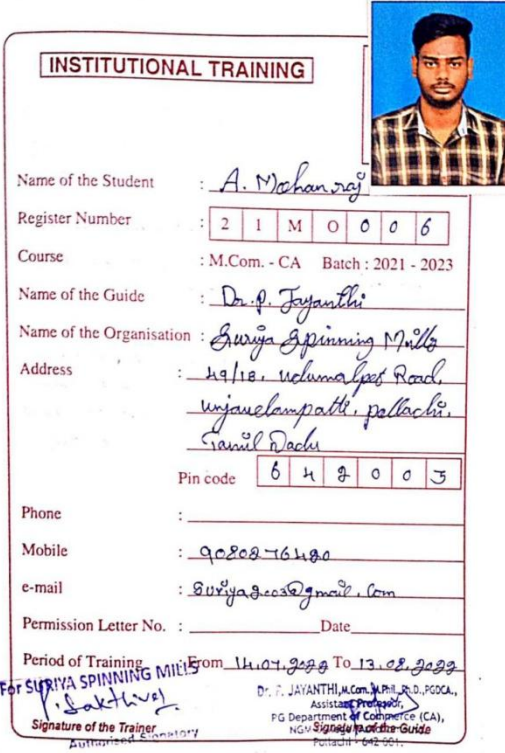 INSTITUTIONAL TRAINING
Name of the Student : A. Mohanraj
Register Number : 2 1 M O 0 0 6
Course : M.Com. - CA Batch : 2021 - 2023
Name of the Guide : Dr. P. Jayanthi
Name of the Organisation : Suriya Spinning Mills
Address : 49/18, udumalpet Road,
unjavelampatti, pollachi,
Tamil Nadu
Pin code 6 4 2 0 0 3
Phone :
Mobile : 9080276420
e-mail : Suriya2003@gmail.com
Permission Letter No. : Date
Period of Training From 14.07.2022 To 13.08.2022
For SURIYA SPINNING MILLS
P. Sakthivel
Signature of the Trainer
Authorised Signatory
Dr. P. JAYANTHI, M.Com., M.Phil., Ph.D., PGDCA.,
Assistant Professor,
PG Department of Commerce (CA),
NGM
Signature of the Guide
Pollachi - 642 001.